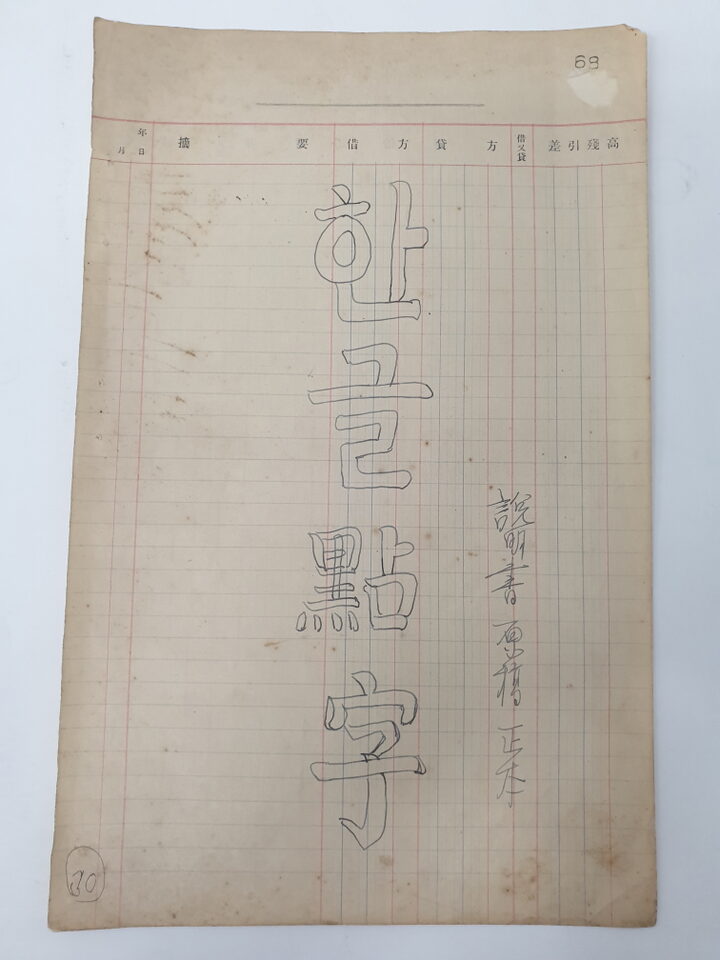 68
年
月 日
摘 要
借 方
貸 方
借又貸
差引残高
한글點字
說明書 原稿 正本
30